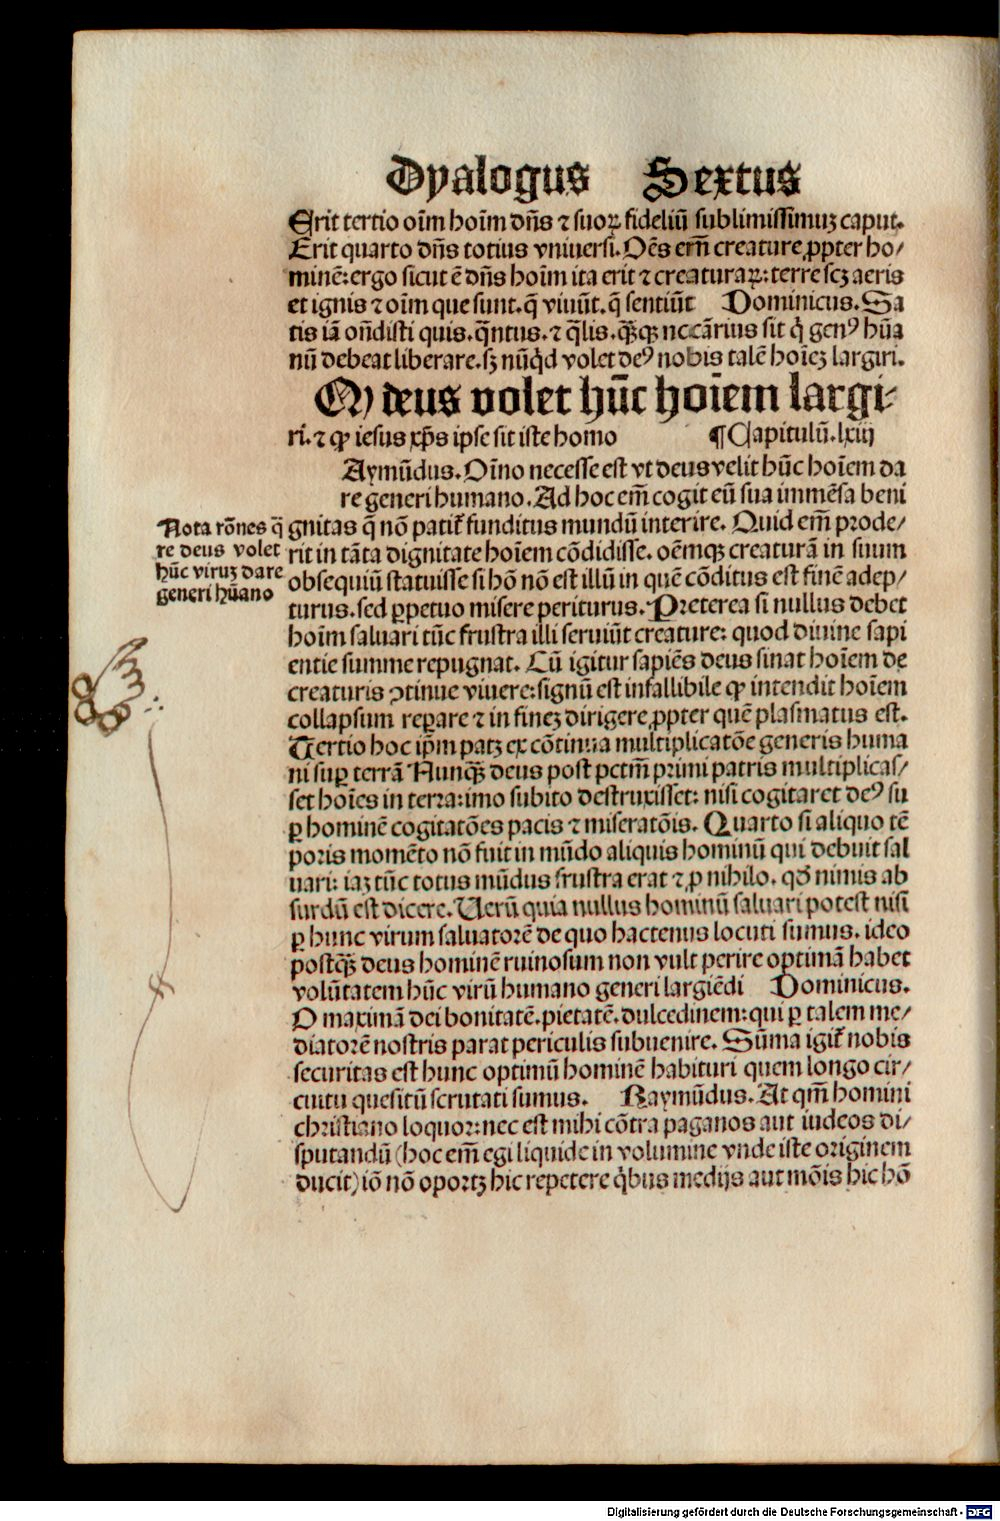 Dyalogus Sextus
Erit tertio oīm hoīm dn̄s ⁊ suoꝝ fideliū sublimissimuꝫ caput.
Erit quarto dn̄s totius vniuersi. Oēs em̄ creature ꝓpter ho/
minē: ergo sicut ē dn̄s hoīm ita erit ⁊ creaturaꝝ: terre scꝫ aeris
et ignis ⁊ oīm que sunt. q̄ viuūt. q̄ sentiūt Dominicus. Sa
tis iā on̄disti quis. q̄ntus. ⁊ q̄lis. qͣ̄ꝫqꝫ necc̄arius sit q̇ genꝰ hūa
nū debeat liberare. sꝫ nūqͥd volet deꝰ nobis talē hoīeꝫ largiri.
Qꝙ deus volet hūc hoīem largi-
ri. ⁊ ꝙ iesus xp̄s ipse sit iste homo ¶ Capitulū. lxiij
Aymūdus. Oīno necesse est vt deus velit hūc hoīem da
re generi humano. Ad hoc em̄ cogit eū sua immēsa beni
Nota rōnes q̄
re deus volet
hūc viruꝫ dare
generi hūano
gnitas q̄ nō patit᷑ funditus mundū interire. Quid em̄ prode/
rit in tāta dignitate hoīem cōdidisse. oēmqꝫ creaturā in suum
obsequiū statuisse si hō nō est illū in quē cōditus est finē adep/
turus. sed ꝑpetuo misere periturus. Preterea si nullus debet
hoīm saluari tūc frustra illi seruiūt creature: quod diuine sapi
entie summe repugnat. Cū igitur sapiēs deus sinat hoīem de
creaturis ꝯtinue viuere: signū est infallibile ꝙ intendit hoīem
collapsum reꝑare ⁊ in fineꝫ dirigere ꝓpter quē plasmatus est.
Tertio hoc ip̄m patꝫ ex cōtinua multiplicatōe generis huma
ni suꝑ terrā Nunqͣ̄ꝫ deus post pctm̄ primi patris multiplicas/
set hoīes in terra: imo subito destruxisset: nisi cogitaret deꝰ su
ꝑ hominē cogitatōes pacis ⁊ miseratōis. Quarto si aliquo tē
poris momēto nō fuit in mūdo aliquis hominū qui debuit sal
uari: iaꝫ tūc totus mūdus frustra erat ⁊ ꝓ nihilo. qð nimis ab
surdū est dicere. Uerū quia nullus hominū saluari potest nisi
ꝑ hunc virum saluatorē de quo hactenus locuti sumus. ideo
postqͣ̄ꝫ deus hominē ruinosum non vult perire optimā habet
volūtatem hūc virū humano generi largiēdi Dominicus.
O maximā dei bonitatē. pietatē. dulcedinem: qui ꝑ talem me/
diatorē nostris parat periculis subuenire. Sūma igit᷑ nobis
securitas est hunc optimū hominē habituri quem longo cir/
cuitu quesitū scrutati sumus. Raymūdus. At qm̄ homini
christiano loquor: nec est mihi cōtra paganos aut iudeos di/
sputandū (hoc em̄ egi liquide in volumine vnde iste originem
ducit) iō nō oportꝫ hic repetere qͥbus medijs aut mōis hic hō
Digitalisierung gefördert durch die Deutsche Forschungsgemeinschaft - DFG